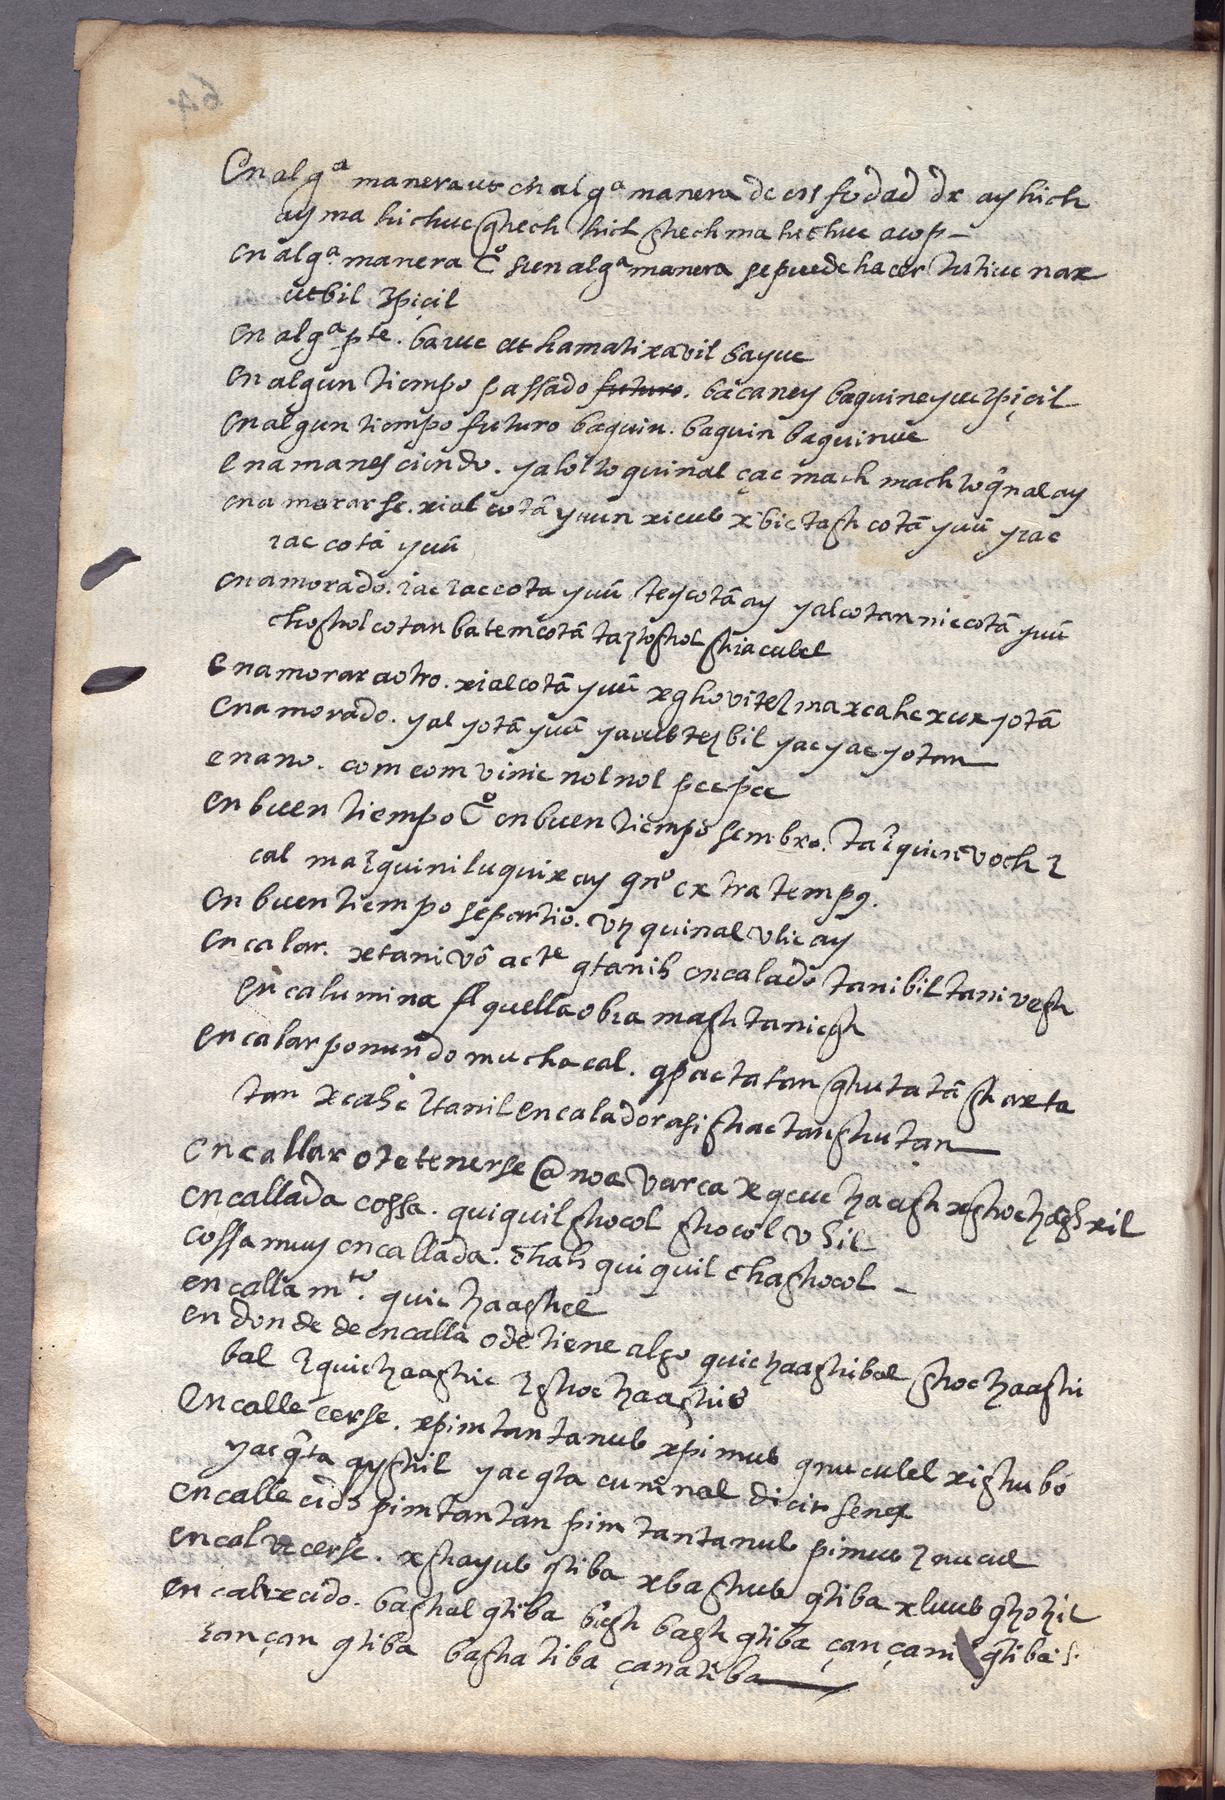 64
En algª manera ut en algª manera de enfedad dx ay hich
ay ma hichuc ghech hich ghech ma hichuc acop
en algª. manera Cº si en algª manera se puede hacer tutiuc nax
utbil zpiçil
en algª pte. bayuc ut hamalixavil bayuc
En algun tiempo passado futuro. bacaney baquineyuc zpiçil
en algun tiempo futuro baquin. baquin baquinuc
enamanesciendo. yaloltoquinal çac mach mach toq̃nal ay
enamorarse. xial cotã yuun xicub x bictagh cotã yuũ yzac
zac cotã yuũ
enamorado. zac zac cota yuũ teycotã ay yalcotan niccotã yuũ
choghol cotan batemcotã
enamorar aotro. xialcotã yuũ xghovitez maxcahcxux yotã
enamorado. yal yotã yuũ yacubtezbil yac yac yotan
enano. com com vinic nolnol pecpec
en buen tiempo Cº en buen tiempo sembro. ta zquinc voch z
cal mazquiniluquix ay qnº extra tempq.
en buen tiempo separtio. vtz quinal vlic ay
encalar. xtani vº acte qtanih encalado tanibil tanivegh
en calumina fl quella obra magh taniegh
encalar poniendo mucha cal. qpactatan ghutatã gharta
tan xcahc ztanil encalador asi ghactan ghutan
encallar o detenerse @ noa varca xqcuc haagh xghochaghxil
encallada cossa. quiquil ghocol ghocol vhil
cossa muy encallada. chah quiquil chaghocol
encallamto. quic haaghel
en donde de encalla o detiene algo quichaaghibal ghoc haaghi
bal zquichaaghic zghoc haaghib
Encallecerse. xpimtantanub xpimub qnuculel xighubo
yac q̃ta qyghil yac qta cuninal dicit senex
encallecido pimtantan pim tantanub pimub znucul
encalvecerse. xghayub qtiba xbaghub qtiba xluub qhohil
encalvecido. baghal qtiba bagh bagh qtiba çançani qtiba s.
zançan qtiba baghatiba çanatiba